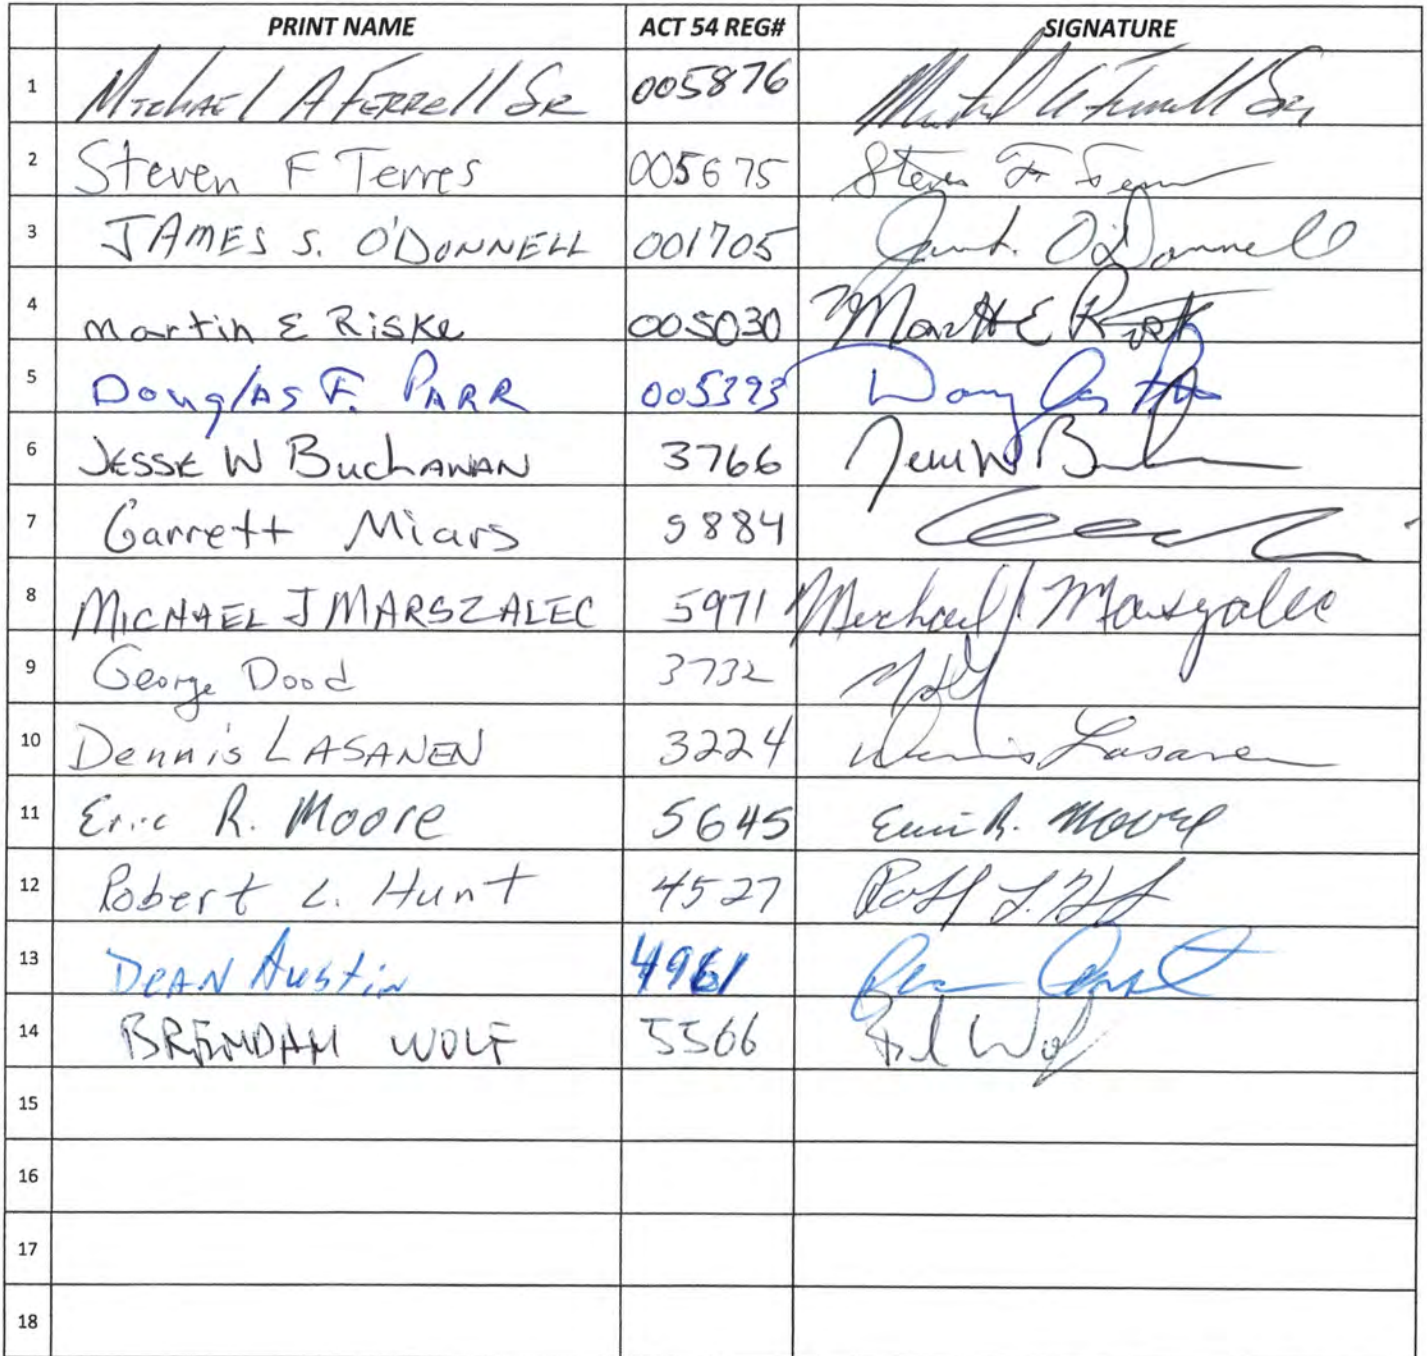 PRINT NAME ACT 54 REG# SIGNATURE
1 MICHAEL A FERRELL SR 005876 Michael A Ferrell Sr.
2 Steven F Terres 005675 Steven F Terres
3 JAMES S. O'DONNELL 001705 James S. O'Donnell
4 martin E Riske 005030 Martin E Riske
5 Douglas F. PARR 005393 Douglas
6 JESSE W BuchANAN 3766 Jesse W B
7 Garrett Miars 9884
8 MICHAEL J MARSZALEC 5971 Michael J. Marszalec
9 George Dood 3732
10 Dennis LASANEN 3224 Dennis Lasanen
11 Eric R. Moore 5645 Eric R. Moore
12 Robert L. Hunt 4527
13 DEAN Austin 4961
14 BRENDAN WOLF 5566 Wolf
15
16
17
18